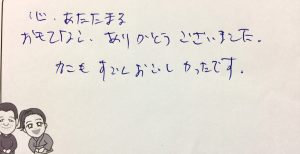 心.あたたまる
おもてなし、ありがとうございました.
かにもすごくおいしかったです.